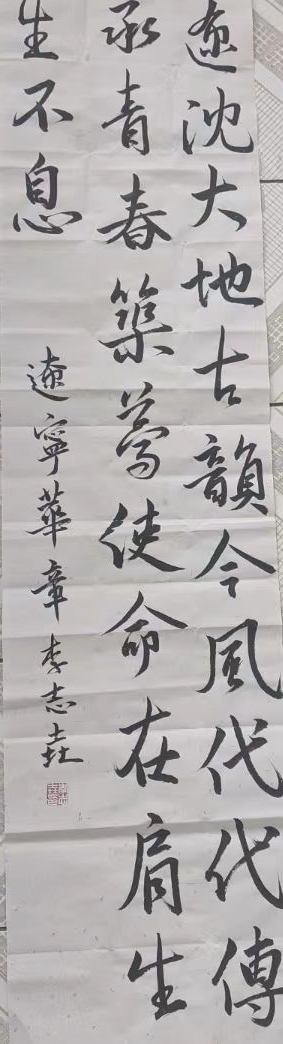 遼沈大地古韻今風代代傳
承青春築夢使命在肩生
生不息
遼寧華章李志垚